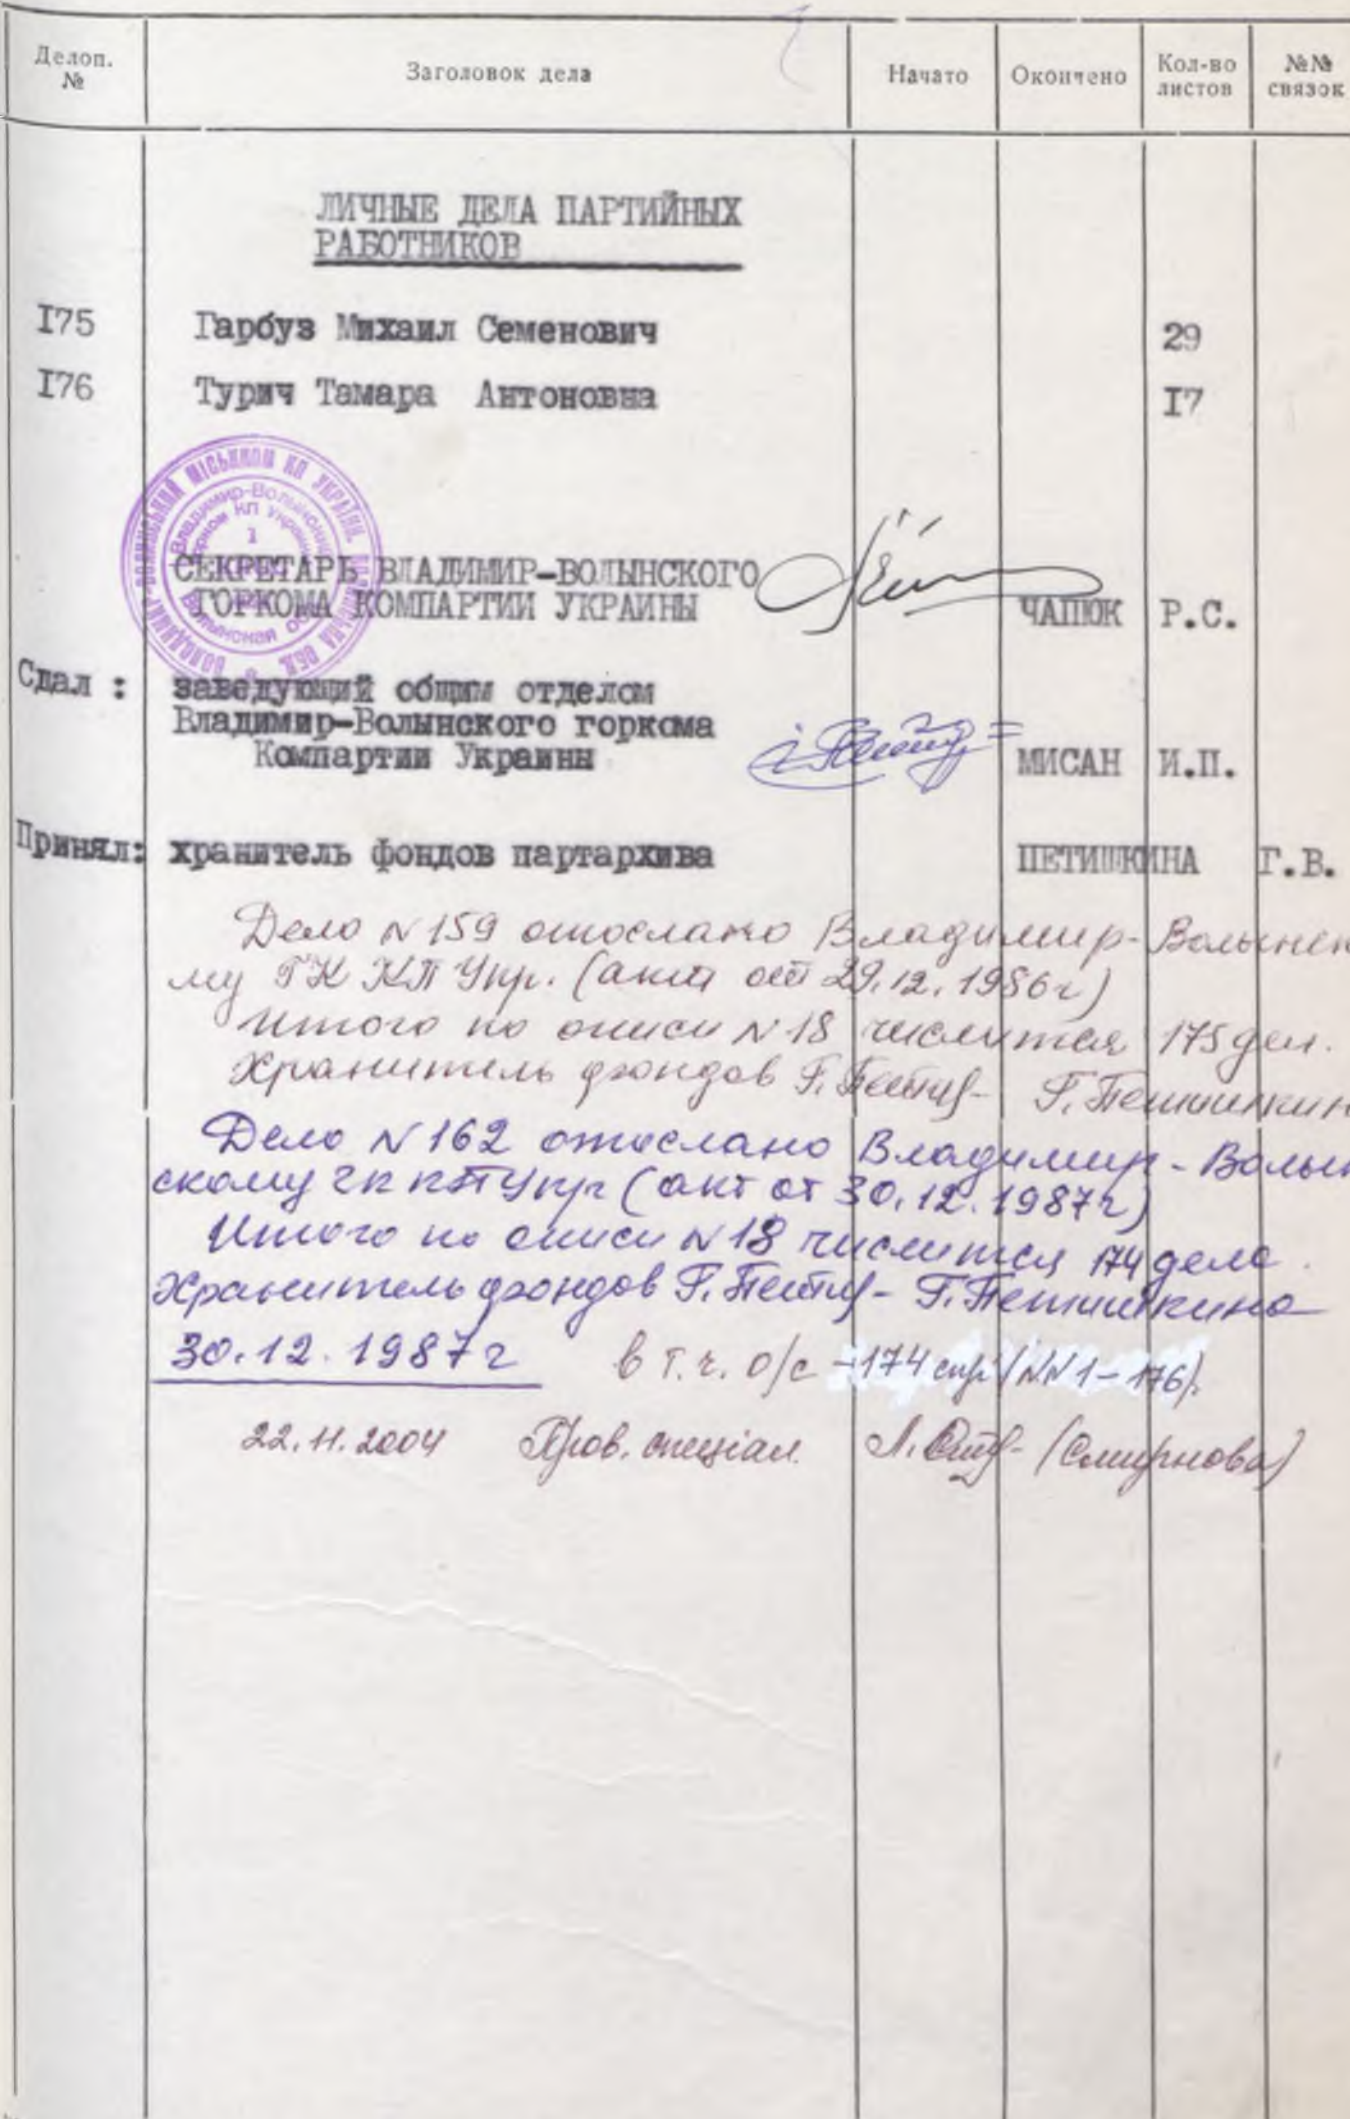 Делоп. №
Заголовок дела
Начато
Окончено
Кол-во листов
№№ связок
ЛИЧНЫЕ ДЕЛА ПАРТИЙНЫХ
РАБОТНИКОВ
I75 Гарбуз Михаил Семенович 29
I76 Турич Тамара Антоновна I7
ВОЛОДИМИР-ВОЛИНСЬКИЙ МІСЬККОМ КП УКРАЇНИ
Владимир-Волынский
горком КП Украины
1
Волынская обл.
СЕКРЕТАРЬ ВЛАДИМИР-ВОЛЫНСКОГО
ГОРКОМА КОМПАРТИИ УКРАИНЫ ЧАПЮК Р.С.
Сдал : заведующий общим отделом
Владимир-Волынского горкома
Компартии Украины МИСАН И.П.
Принял: хранитель фондов партархива ПЕТИШКИНА Г.В.
Дело N 159 отослано Владимир-Волынск
му ГК КП Укр. (акт от 29.12.1986г)
Итого по описи N 18 числится 175 дел.
Хранитель фондов Г. Петиш- Г. Петишкин
Дело N 162 отослано Владимир-Волын
скому гк кп Укр (акт от 30.12.1987г)
Итого по описи N 18 числится 174 дела.
Хранитель фондов Г. Петиш- Г. Петишкина
30.12.1987г в т.ч. о/с -174 спр. (NN 1-176).
22.11.2004 Пров. спеціал. Л. (Смирнова)